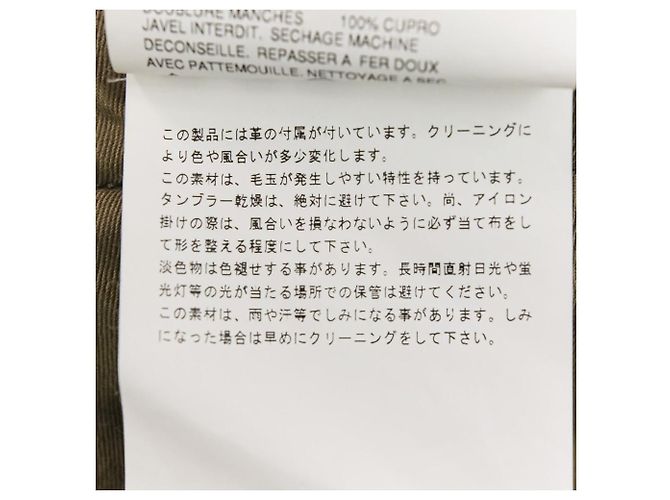 DOUBLURE MANCHES 100% CUPRO
JAVEL INTERDIT. SECHAGE MACHINE
DECONSEILLE. REPASSER A FER DOUX
AVEC PATTEMOUILLE. NETTOYAGE A SEC
この製品には革の付属が付いています。クリーニングに
より色や風合いが多少変化します。
この素材は、毛玉が発生しやすい特性を持っています。
タンブラー乾燥は、絶対に避けて下さい。尚、アイロン
掛けの際は、風合いを損なわないように必ず当て布をし
て形を整える程度にして下さい。
淡色物は色褪せする事があります。長時間直射日光や蛍
光灯等の光が当たる場所での保管は避けてください。
この素材は、雨や汗等でしみになる事があります。しみ
になった場合は早めにクリーニングをして下さい。